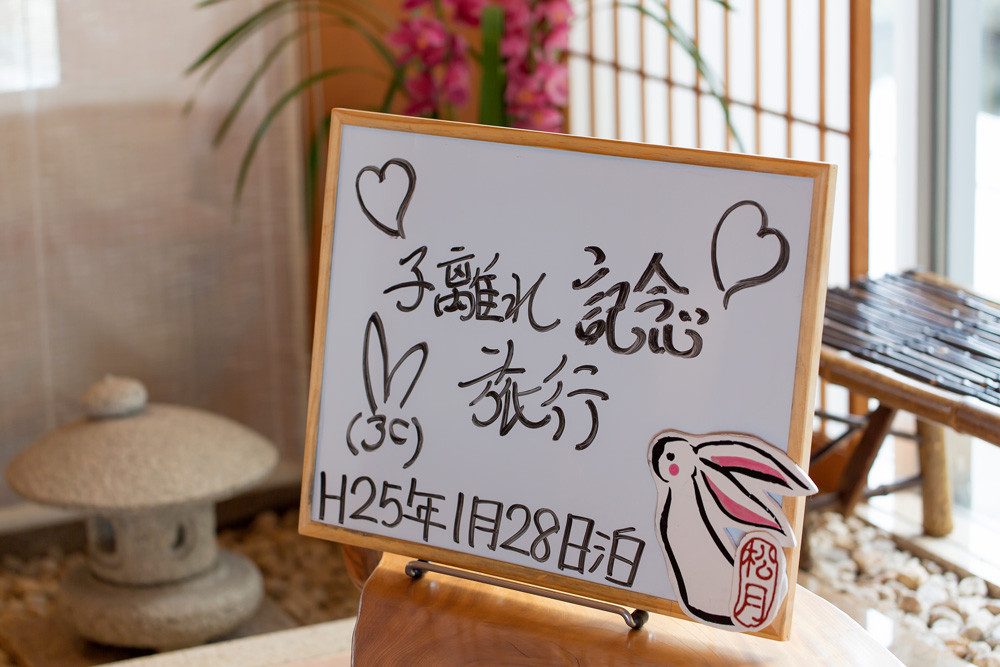 子離れ 記念
旅行
(3c)
H25年1月28日泊
松月